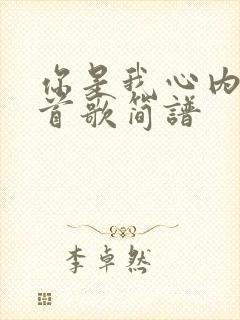 你是我心内
首歌简譜
李卓然